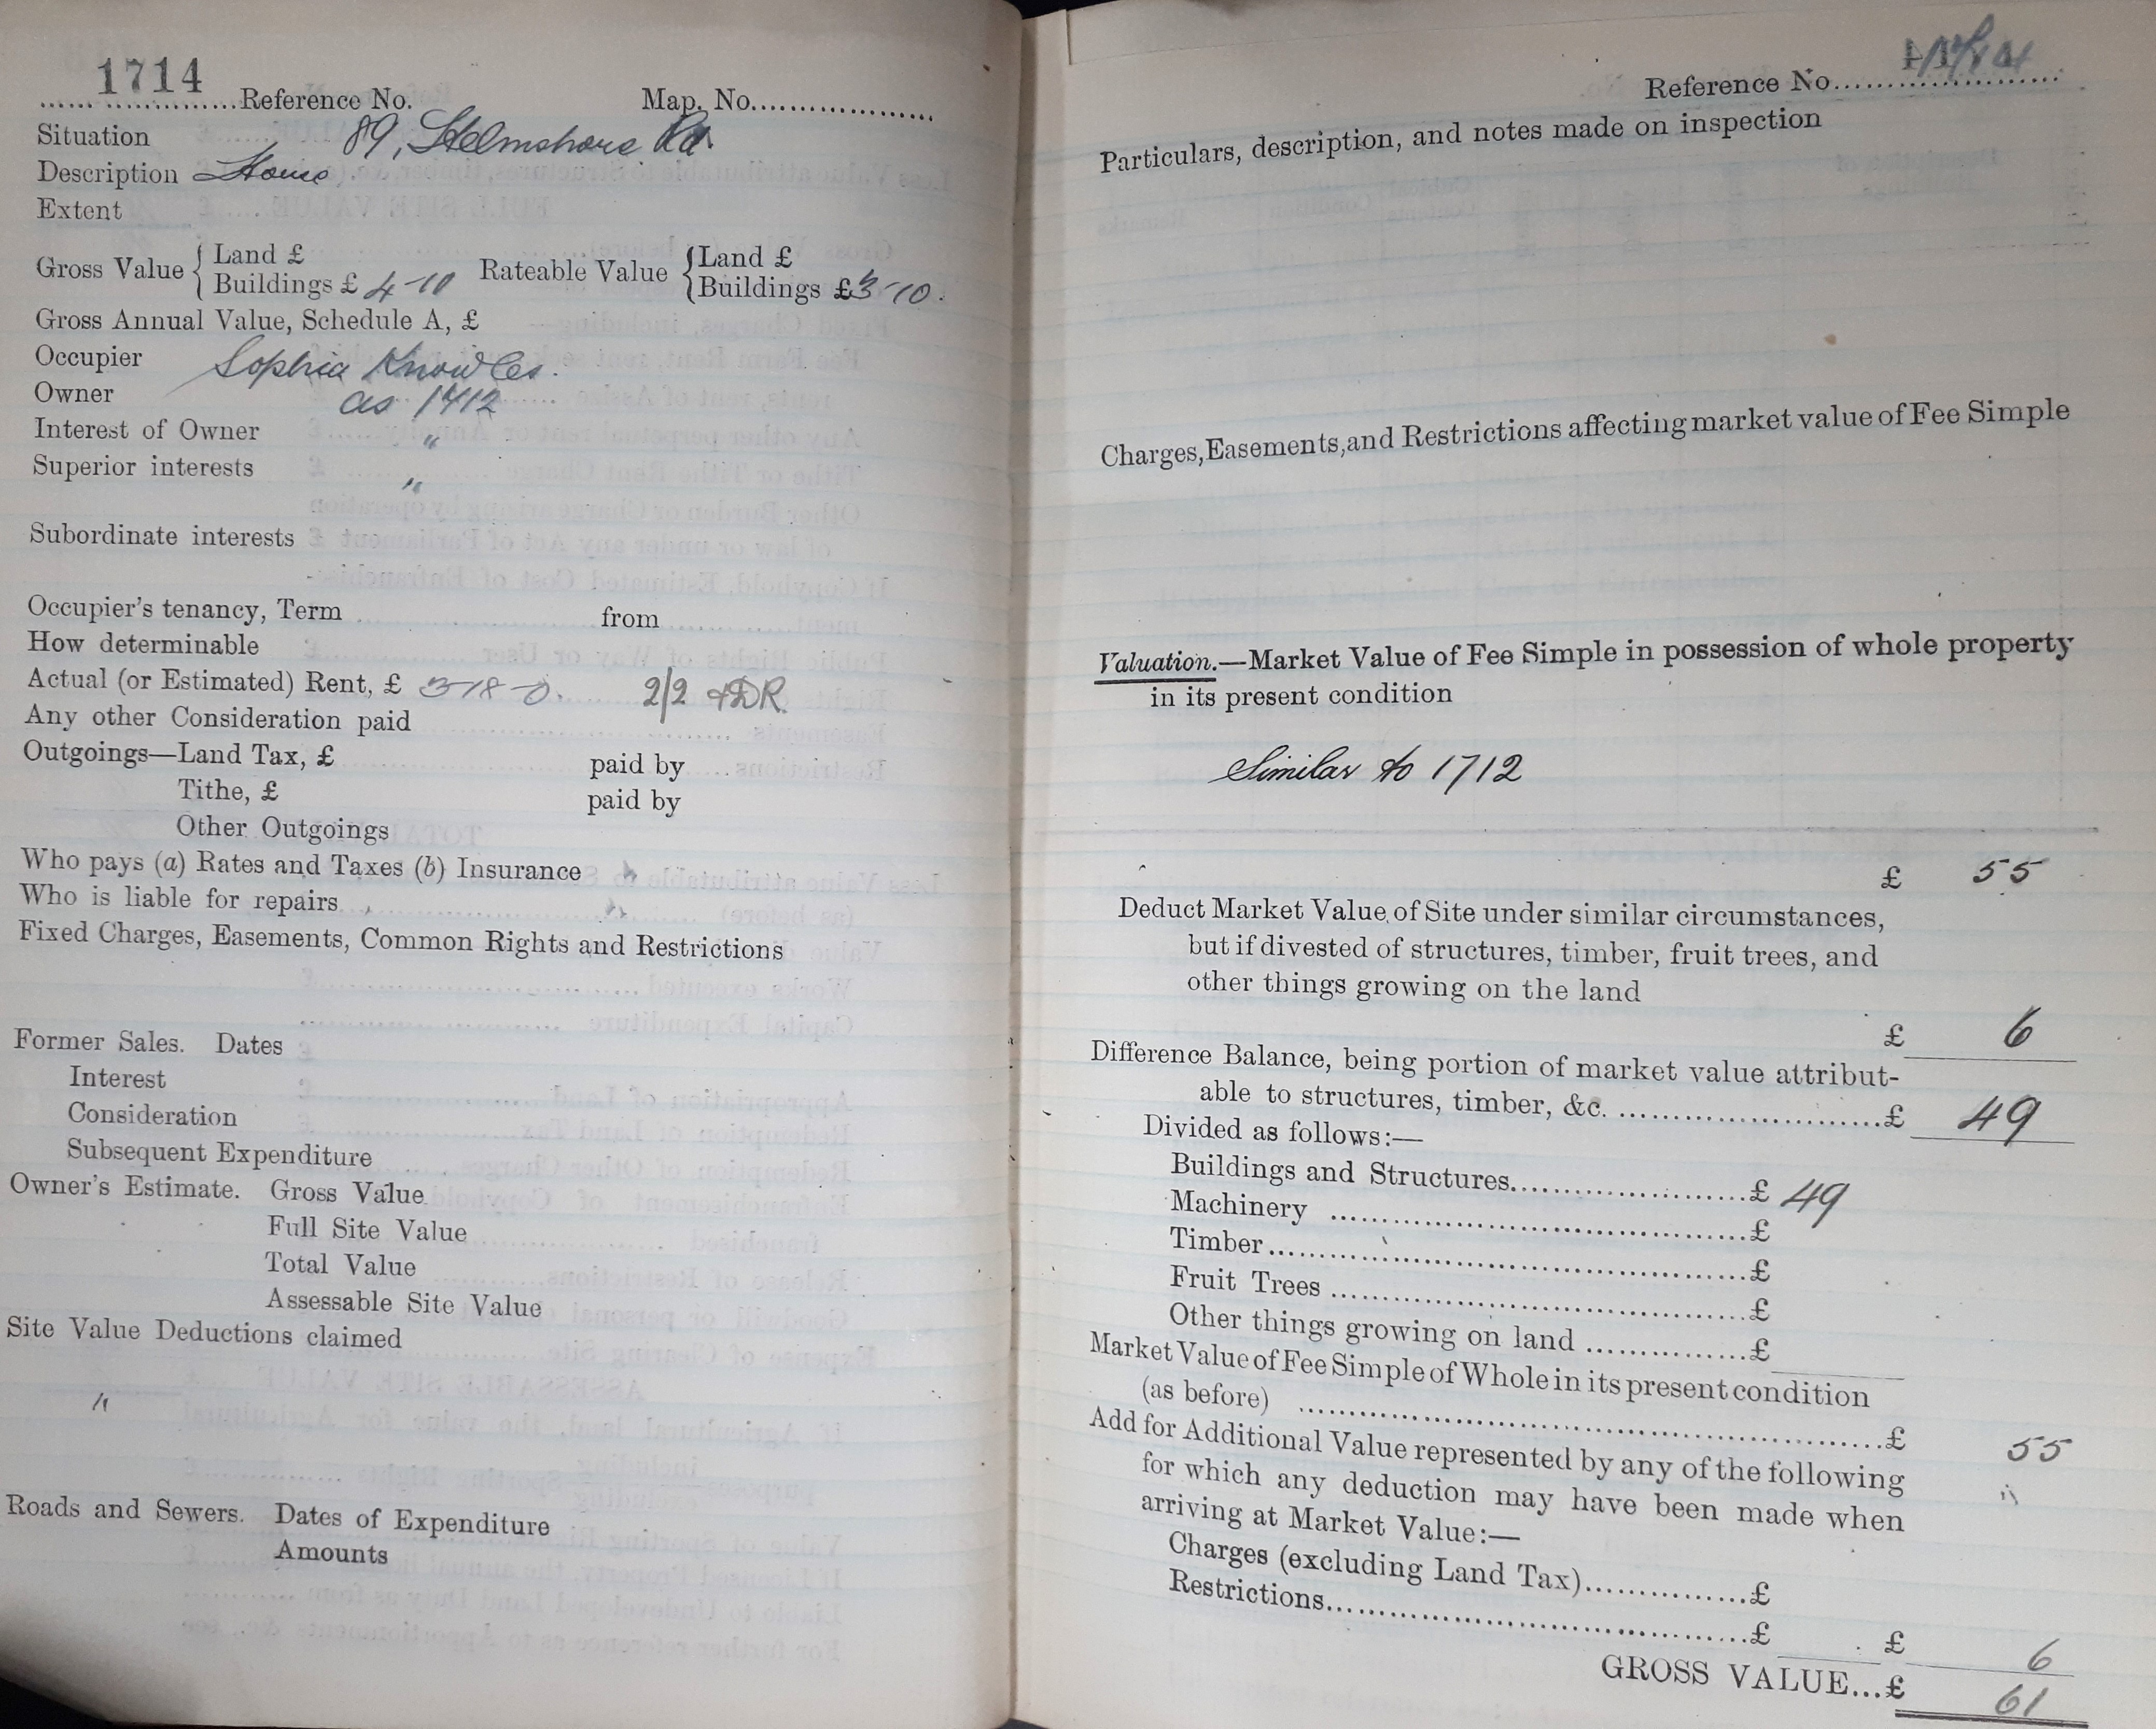 1714
Reference No. Map. No.
Situation 89, Helmshore Rd.
Description House
Extent
Gross Value { Land £ Rateable Value { Land £
Buildings £ 4-10 Buildings £3-10.
Gross Annual Value, Schedule A, £
Occupier Sophia Knowles.
Owner as 1712
Interest of Owner "
Superior interests "
Subordinate interests
Occupier's tenancy, Term from
How determinable
Actual (or Estimated) Rent, £ 3-18-0. 2/2 + DR.
Any other Consideration paid
Outgoings—Land Tax, £ paid by
Tithe, £ paid by
Other Outgoings
Who pays (a) Rates and Taxes (b) Insurance
Who is liable for repairs
Fixed Charges, Easements, Common Rights and Restrictions
Former Sales. Dates
Interest
Consideration
Subsequent Expenditure
Owner's Estimate. Gross Value
Full Site Value
Total Value
Assessable Site Value
Site Value Deductions claimed
"
Roads and Sewers. Dates of Expenditure
Amounts
Reference No.
Particulars, description, and notes made on inspection
Charges, Easements, and Restrictions affecting market value of Fee Simple
Valuation.—Market Value of Fee Simple in possession of whole property
in its present condition
Similar to 1712
£ 55
Deduct Market Value of Site under similar circumstances,
but if divested of structures, timber, fruit trees, and
other things growing on the land
£ 6
Difference Balance, being portion of market value attribut-
able to structures, timber, &c. £ 49
Divided as follows:—
Buildings and Structures £ 49
Machinery £
Timber £
Fruit Trees £
Other things growing on land £
Market Value of Fee Simple of Whole in its present condition
(as before) £ 55
Add for Additional Value represented by any of the following
for which any deduction may have been made when
arriving at Market Value:—
Charges (excluding Land Tax) £
Restrictions £ £ 6
GROSS VALUE...£ 61